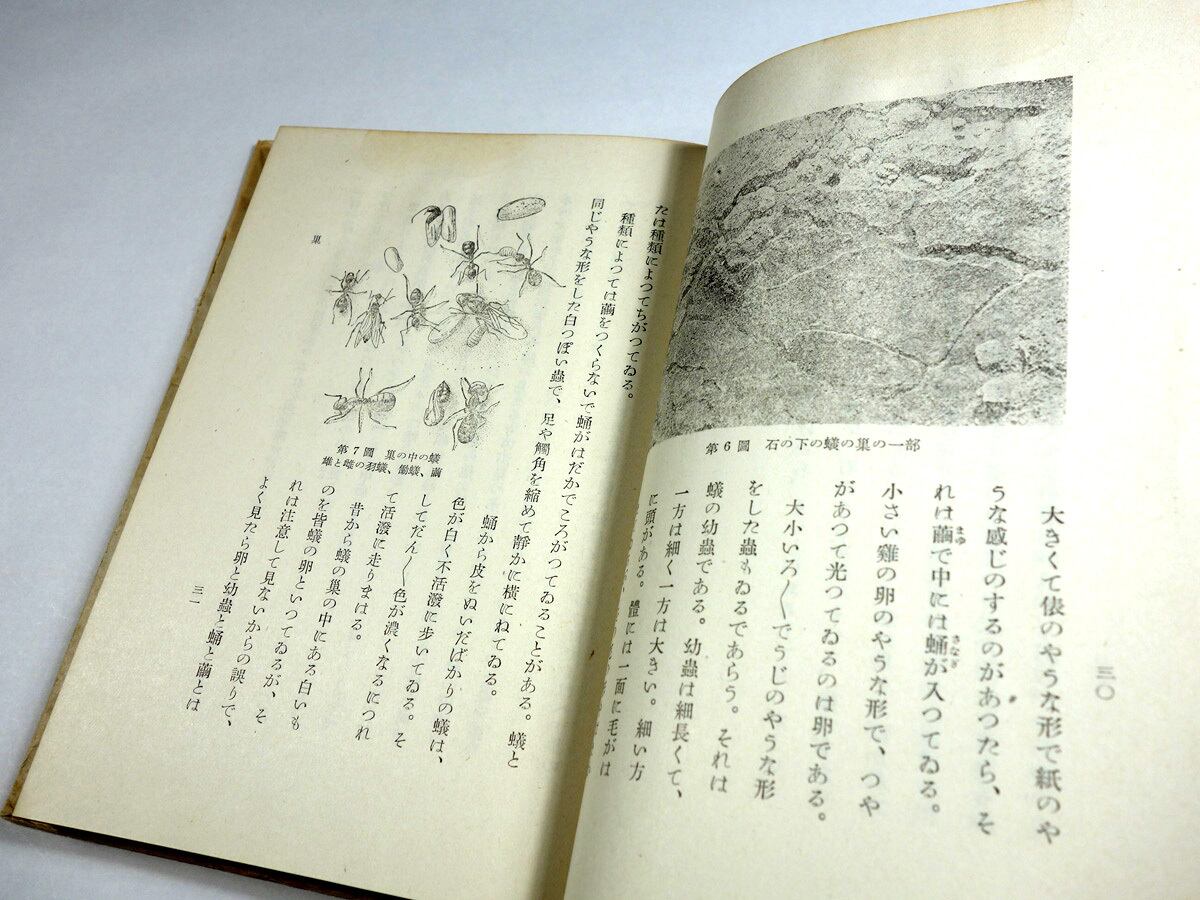 三〇
第6圖 石の下の蟻の巢の一部
大きくて俵のやうな形で紙のや
うな感じのするのがあつたら、そ
れは繭で中には蛹が入つてゐる。
まゆ
さなぎ
小さい雞の卵のやうな形で、つや
があつて光つてゐるのは卵である。
大小いろ〱でうじのやうな形
をした蟲もゐるであらう。それは
蟻の幼蟲である。幼蟲は細長くて、
一方は細く一方は大きい。細い方
に頭がある。體には一面に毛がは
たは種類によつてちがつてゐる。
種類によつては繭をつくらないで蛹がはだかでころがつてゐることがある。蟻と
同じやうな形をした白つぽい蟲で、足や觸角を縮めて靜かに橫にねてゐる。
蛹から皮をぬいだばかりの蟻は、
色が白く不活潑に步いてゐる。そ
してだん〱色が濃くなるにつれ
て活潑に走りまはる。
昔から蟻の巢の中にある白いも
のを皆蟻の卵といつてゐるが、そ
れは注意して見ないからの誤りで、
よく見たら卵と幼蟲と蛹と繭とは
第7圖 巢の中の蟻
雄と雌の羽蟻、働蟻、繭
巢
三一